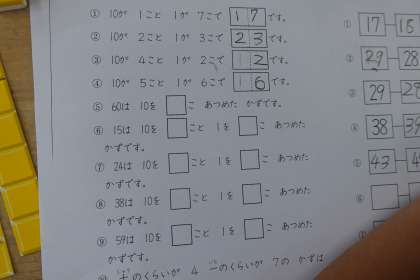 ① 10が 1こと 1が 7こで 17です。
② 10が 2こと 1が 3こで 23です。
③ 10が 4こと 1が 2こで 12です。
④ 10が 5こと 1が 6こで 16です。
⑤ 60は 10を □こ あつめた かずです。
⑥ 15は 10を □こと 1を □こ あつめた
かずです。
⑦ 24は 10を □こと 1を □こ あつめた
かずです。
⑧ 38は 10を □こと 1を □こ あつめた
かずです。
⑨ 59は 10を □こと 1を □こ あつめた
かずです。
のくらいが 4 一のくらいが 7の かずは
① 17
② 29 28
③ 29
④ 38
⑤ 43